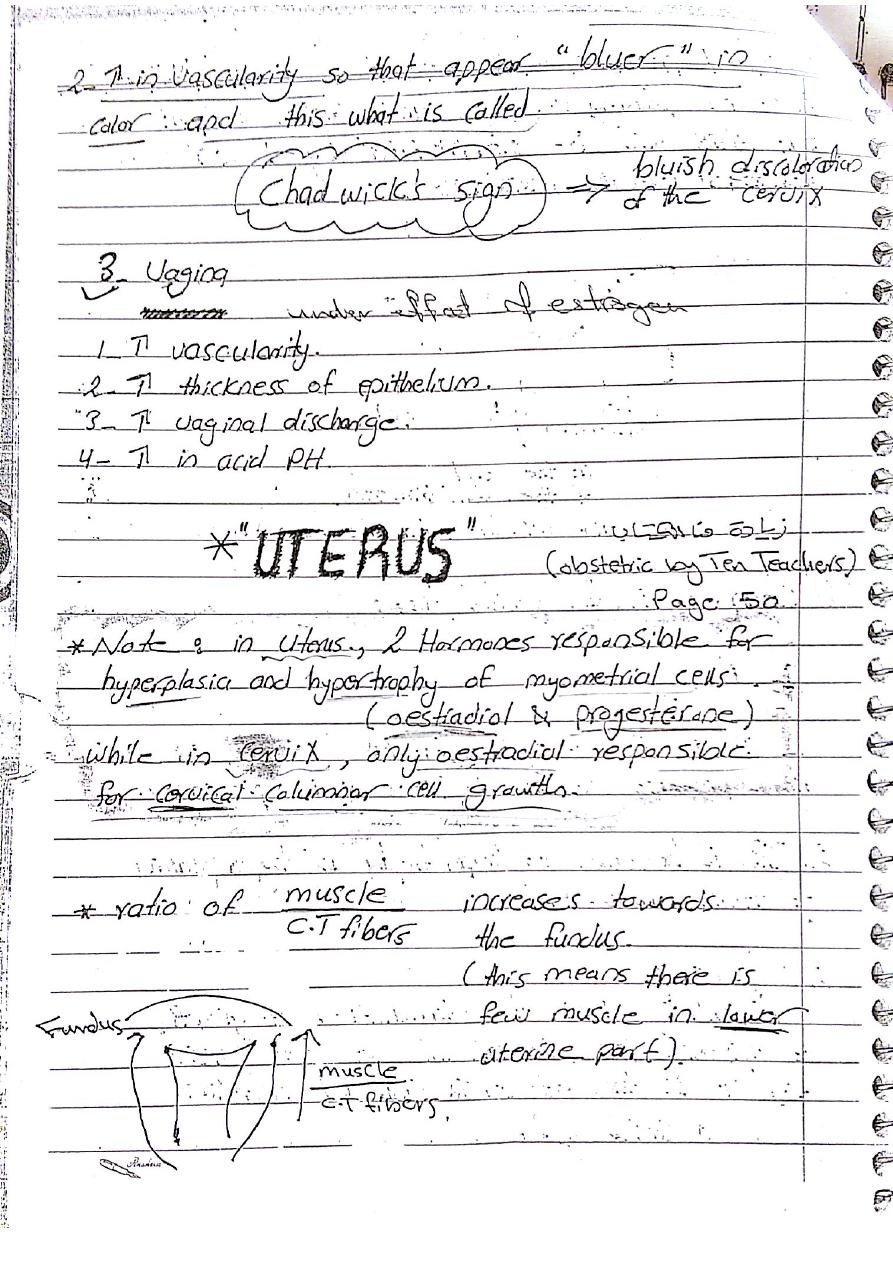 2- ↑ in vascularity so that appear "bluer" in
color and this what is called
Chadwick's sign ⇒ bluish discoloration
of the cervix
3- Vagina
under effect of estrogen
1- ↑ vascularity.
2- ↑ thickness of epithelium.
3- ↑ vaginal discharge.
4- ↑ in acid PH.
*"UTERUS"
زيادة من الكتاب
(obstetric by Ten Teachers)
Page 50
* Note : in Uterus, 2 Hormones responsible for
hyperplasia and hypertrophy of myometrial cells
(oestradiol & progesterone)
while in cervix, only oestradiol responsible
for cervical columnar cell growth.
* ratio of muscle / C.T fibers increases towards
the fundus.
(this means there is
few muscle in lower
uterine part).
Fundus
muscle
C.T fibers.